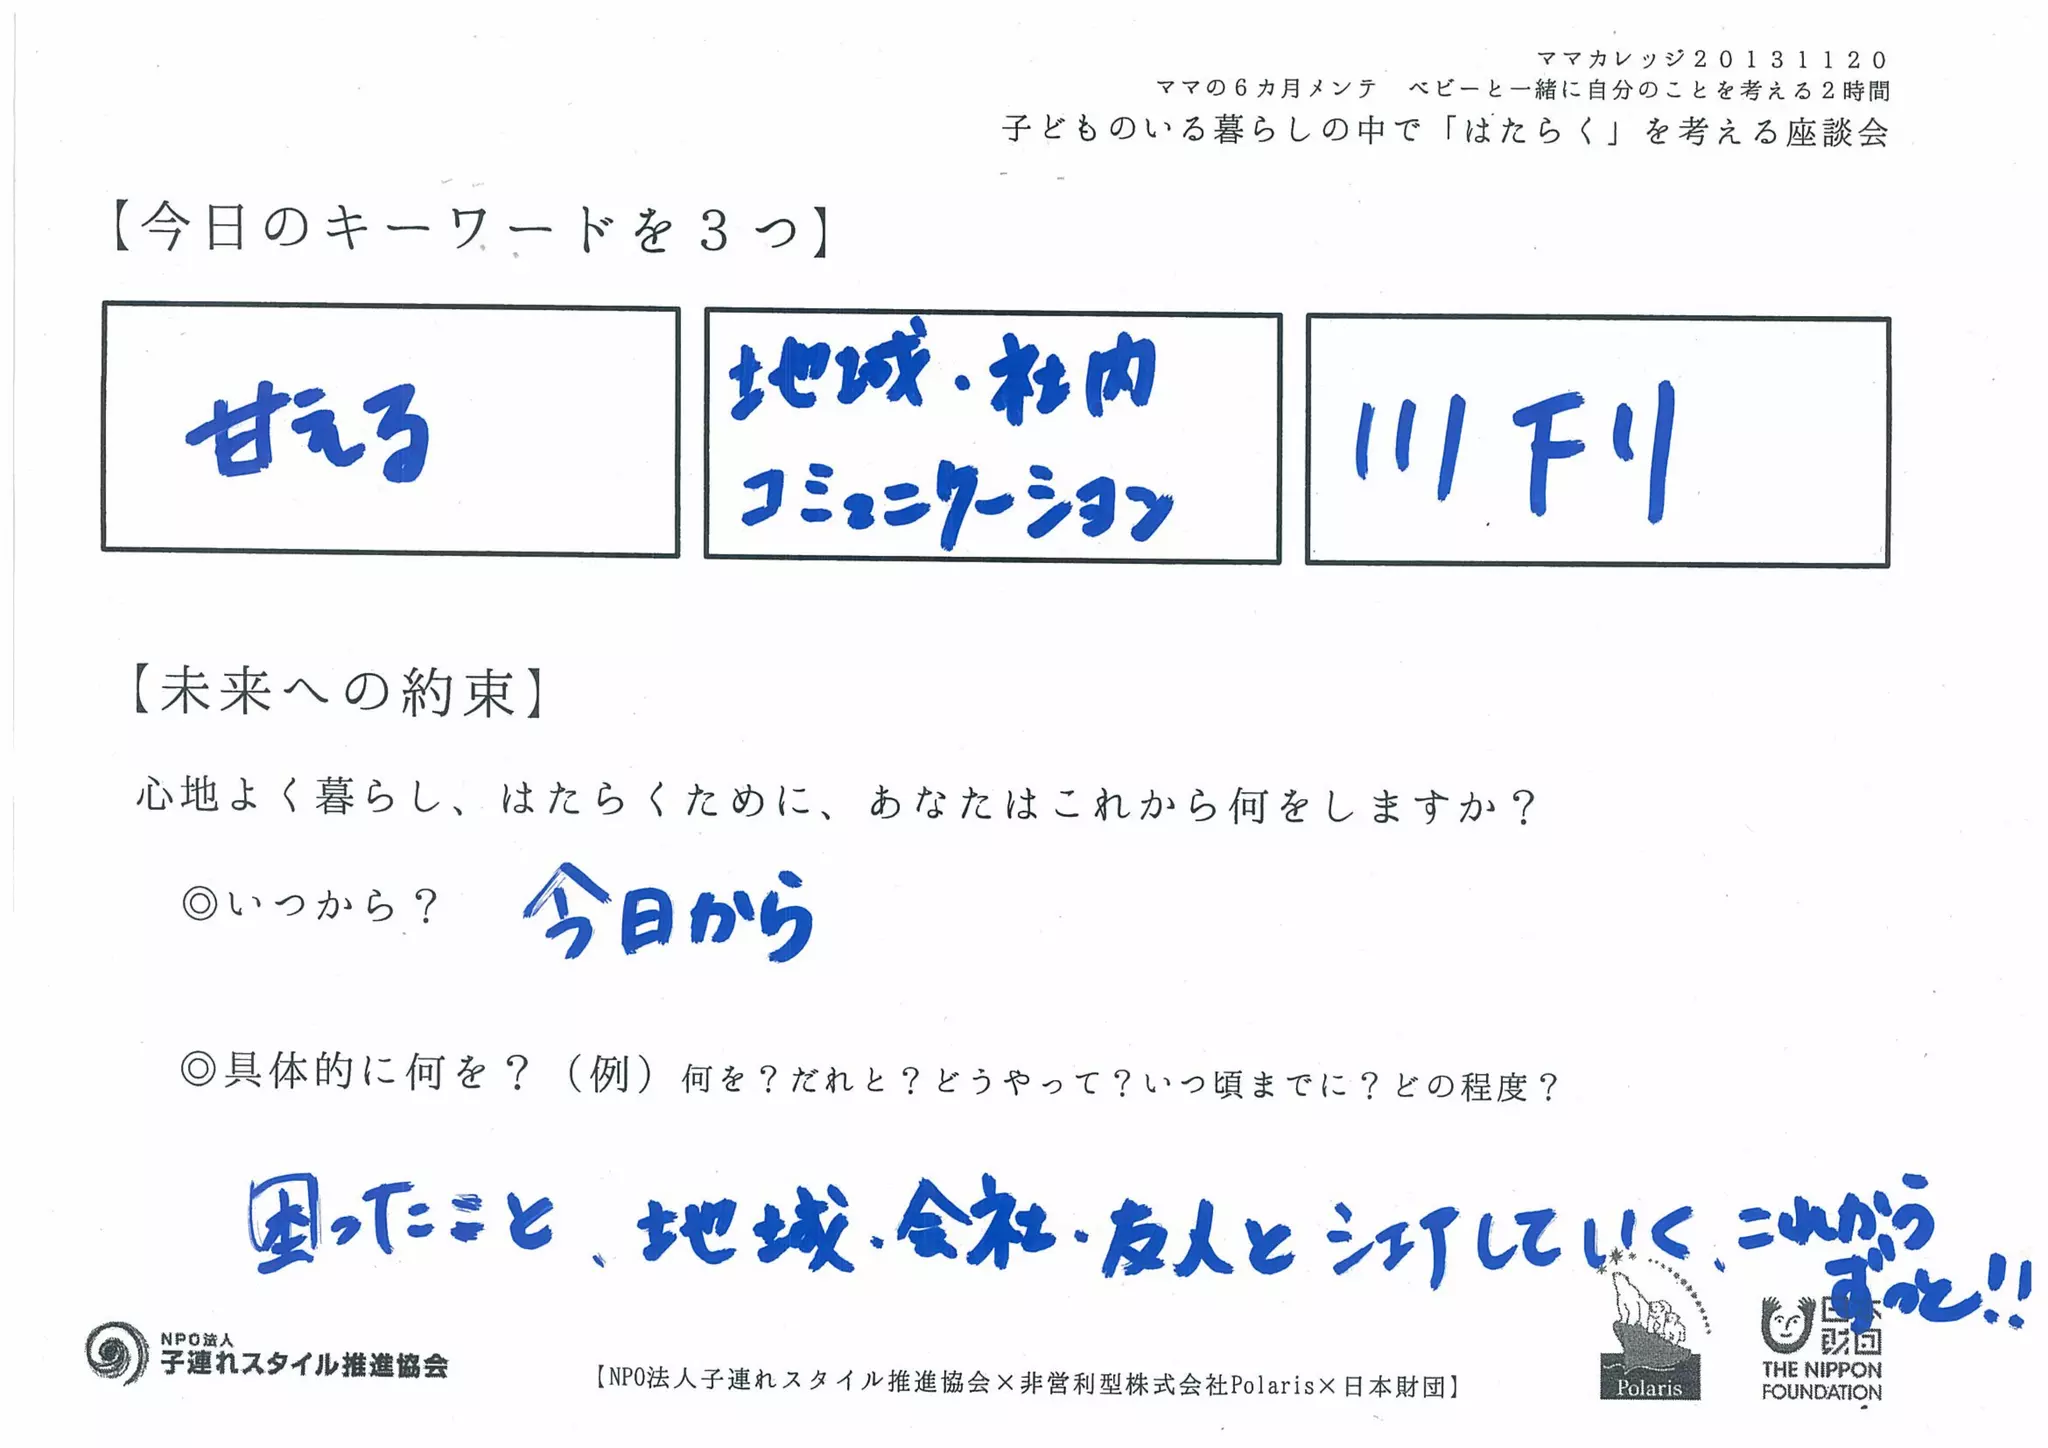 ママカレッジ20131120
ママの6カ月メンテ　ベビーと一緒に自分のことを考える2時間
子どものいる暮らしの中で「はたらく」を考える座談会
【今日のキーワードを3つ】
甘える
地域・社内
コミュニケーション
川下り
【未来への約束】
心地よく暮らし、はたらくために、あなたはこれから何をしますか？
◎いつから？　今日から
◎具体的に何を？（例）何を？だれと？どうやって？いつ頃までに？どの程度？
困ったこと、地域・会社・友人とシェイしていく、これから
ずっと!!
NPO法人
子連れスタイル推進協会
【NPO法人子連れスタイル推進協会×非営利型株式会社Polaris×日本財団】
Polaris
日本
財団
THE NIPPON
FOUNDATION